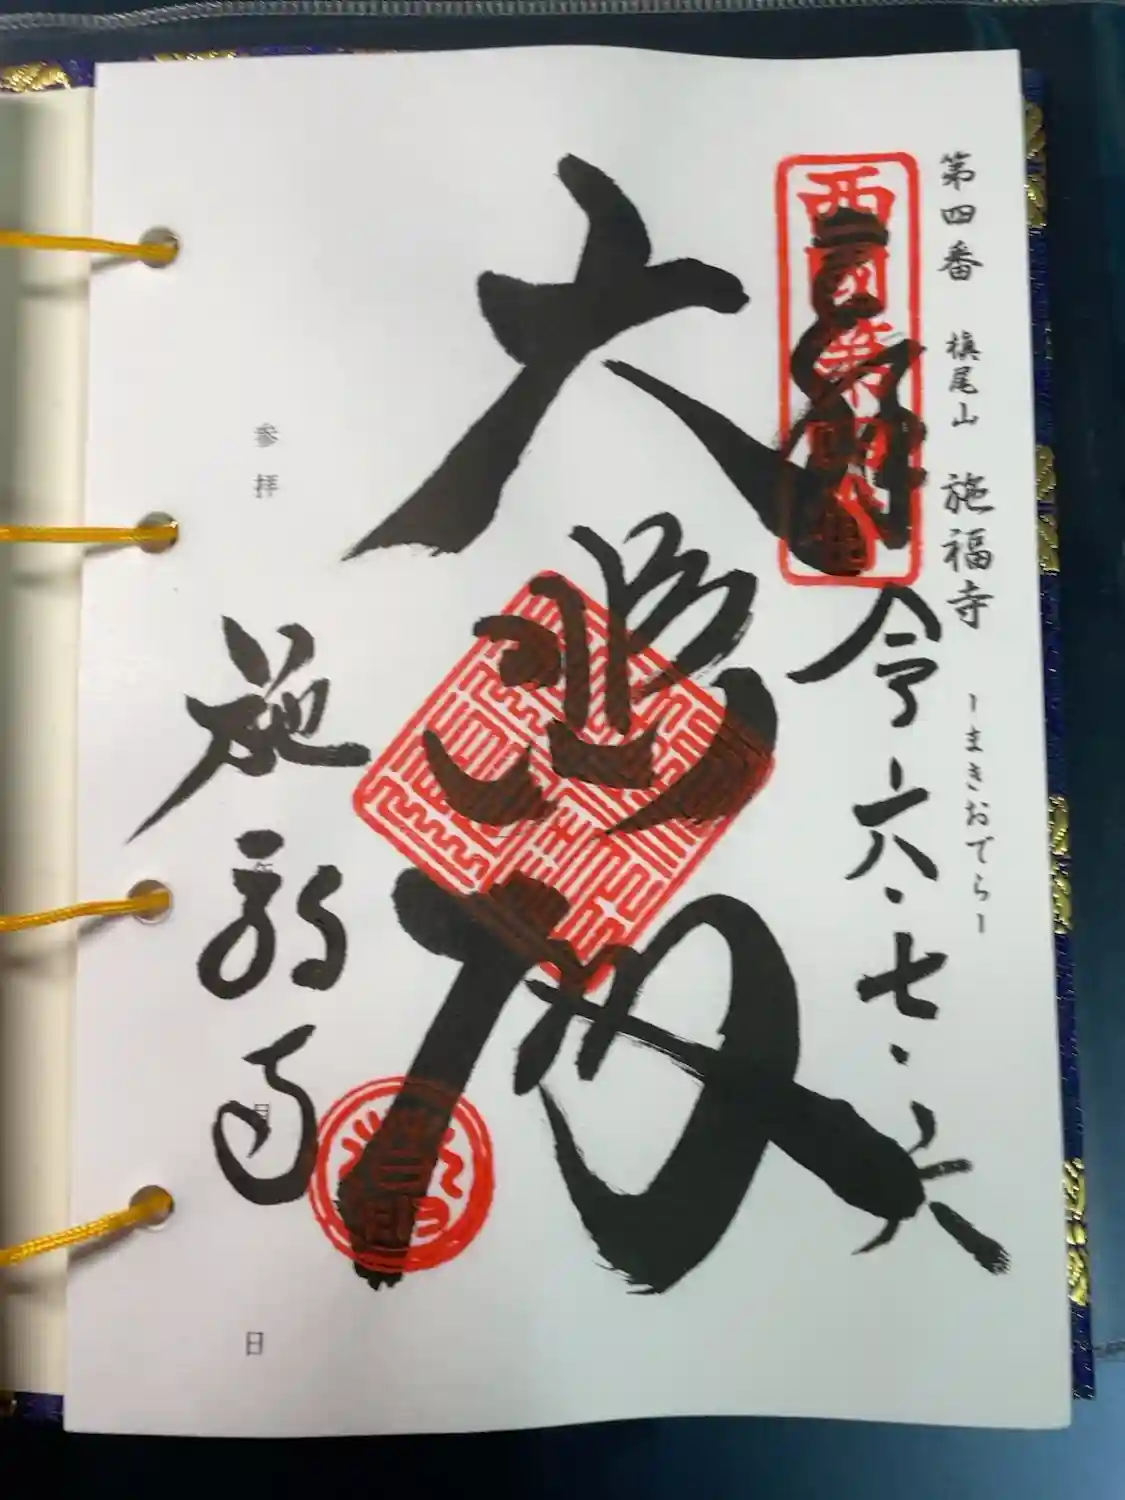 第四番 槇尾山 施福寺 ーまきおでらー
西国第四番
奉拝
令六・七・六
大悲殿
施福寺
参拝
年
月
日